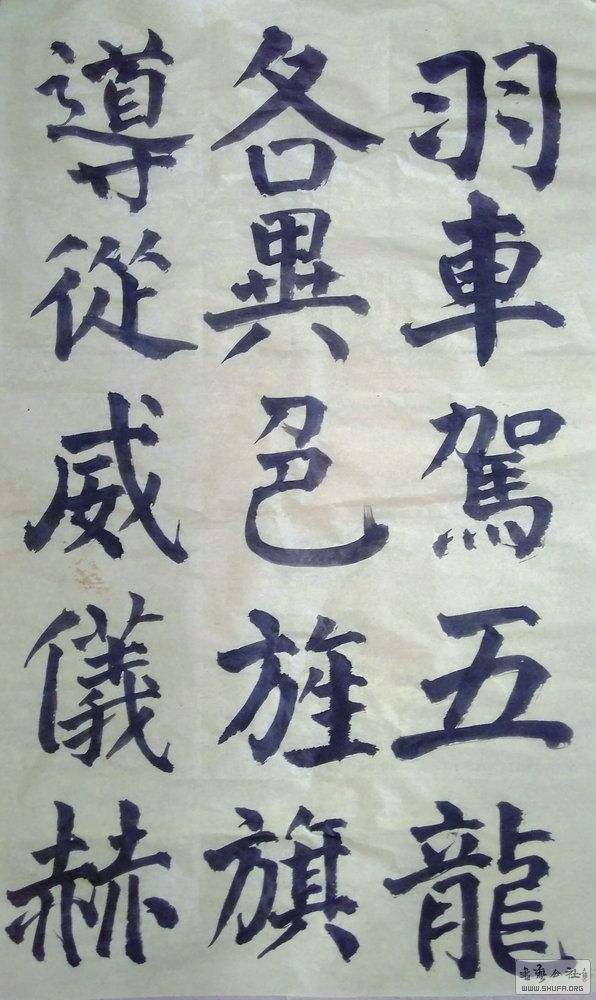 羽車駕五龍
各異色旌旗
導從威儀赫
書藝公社
WWW.SHUFA.ORG